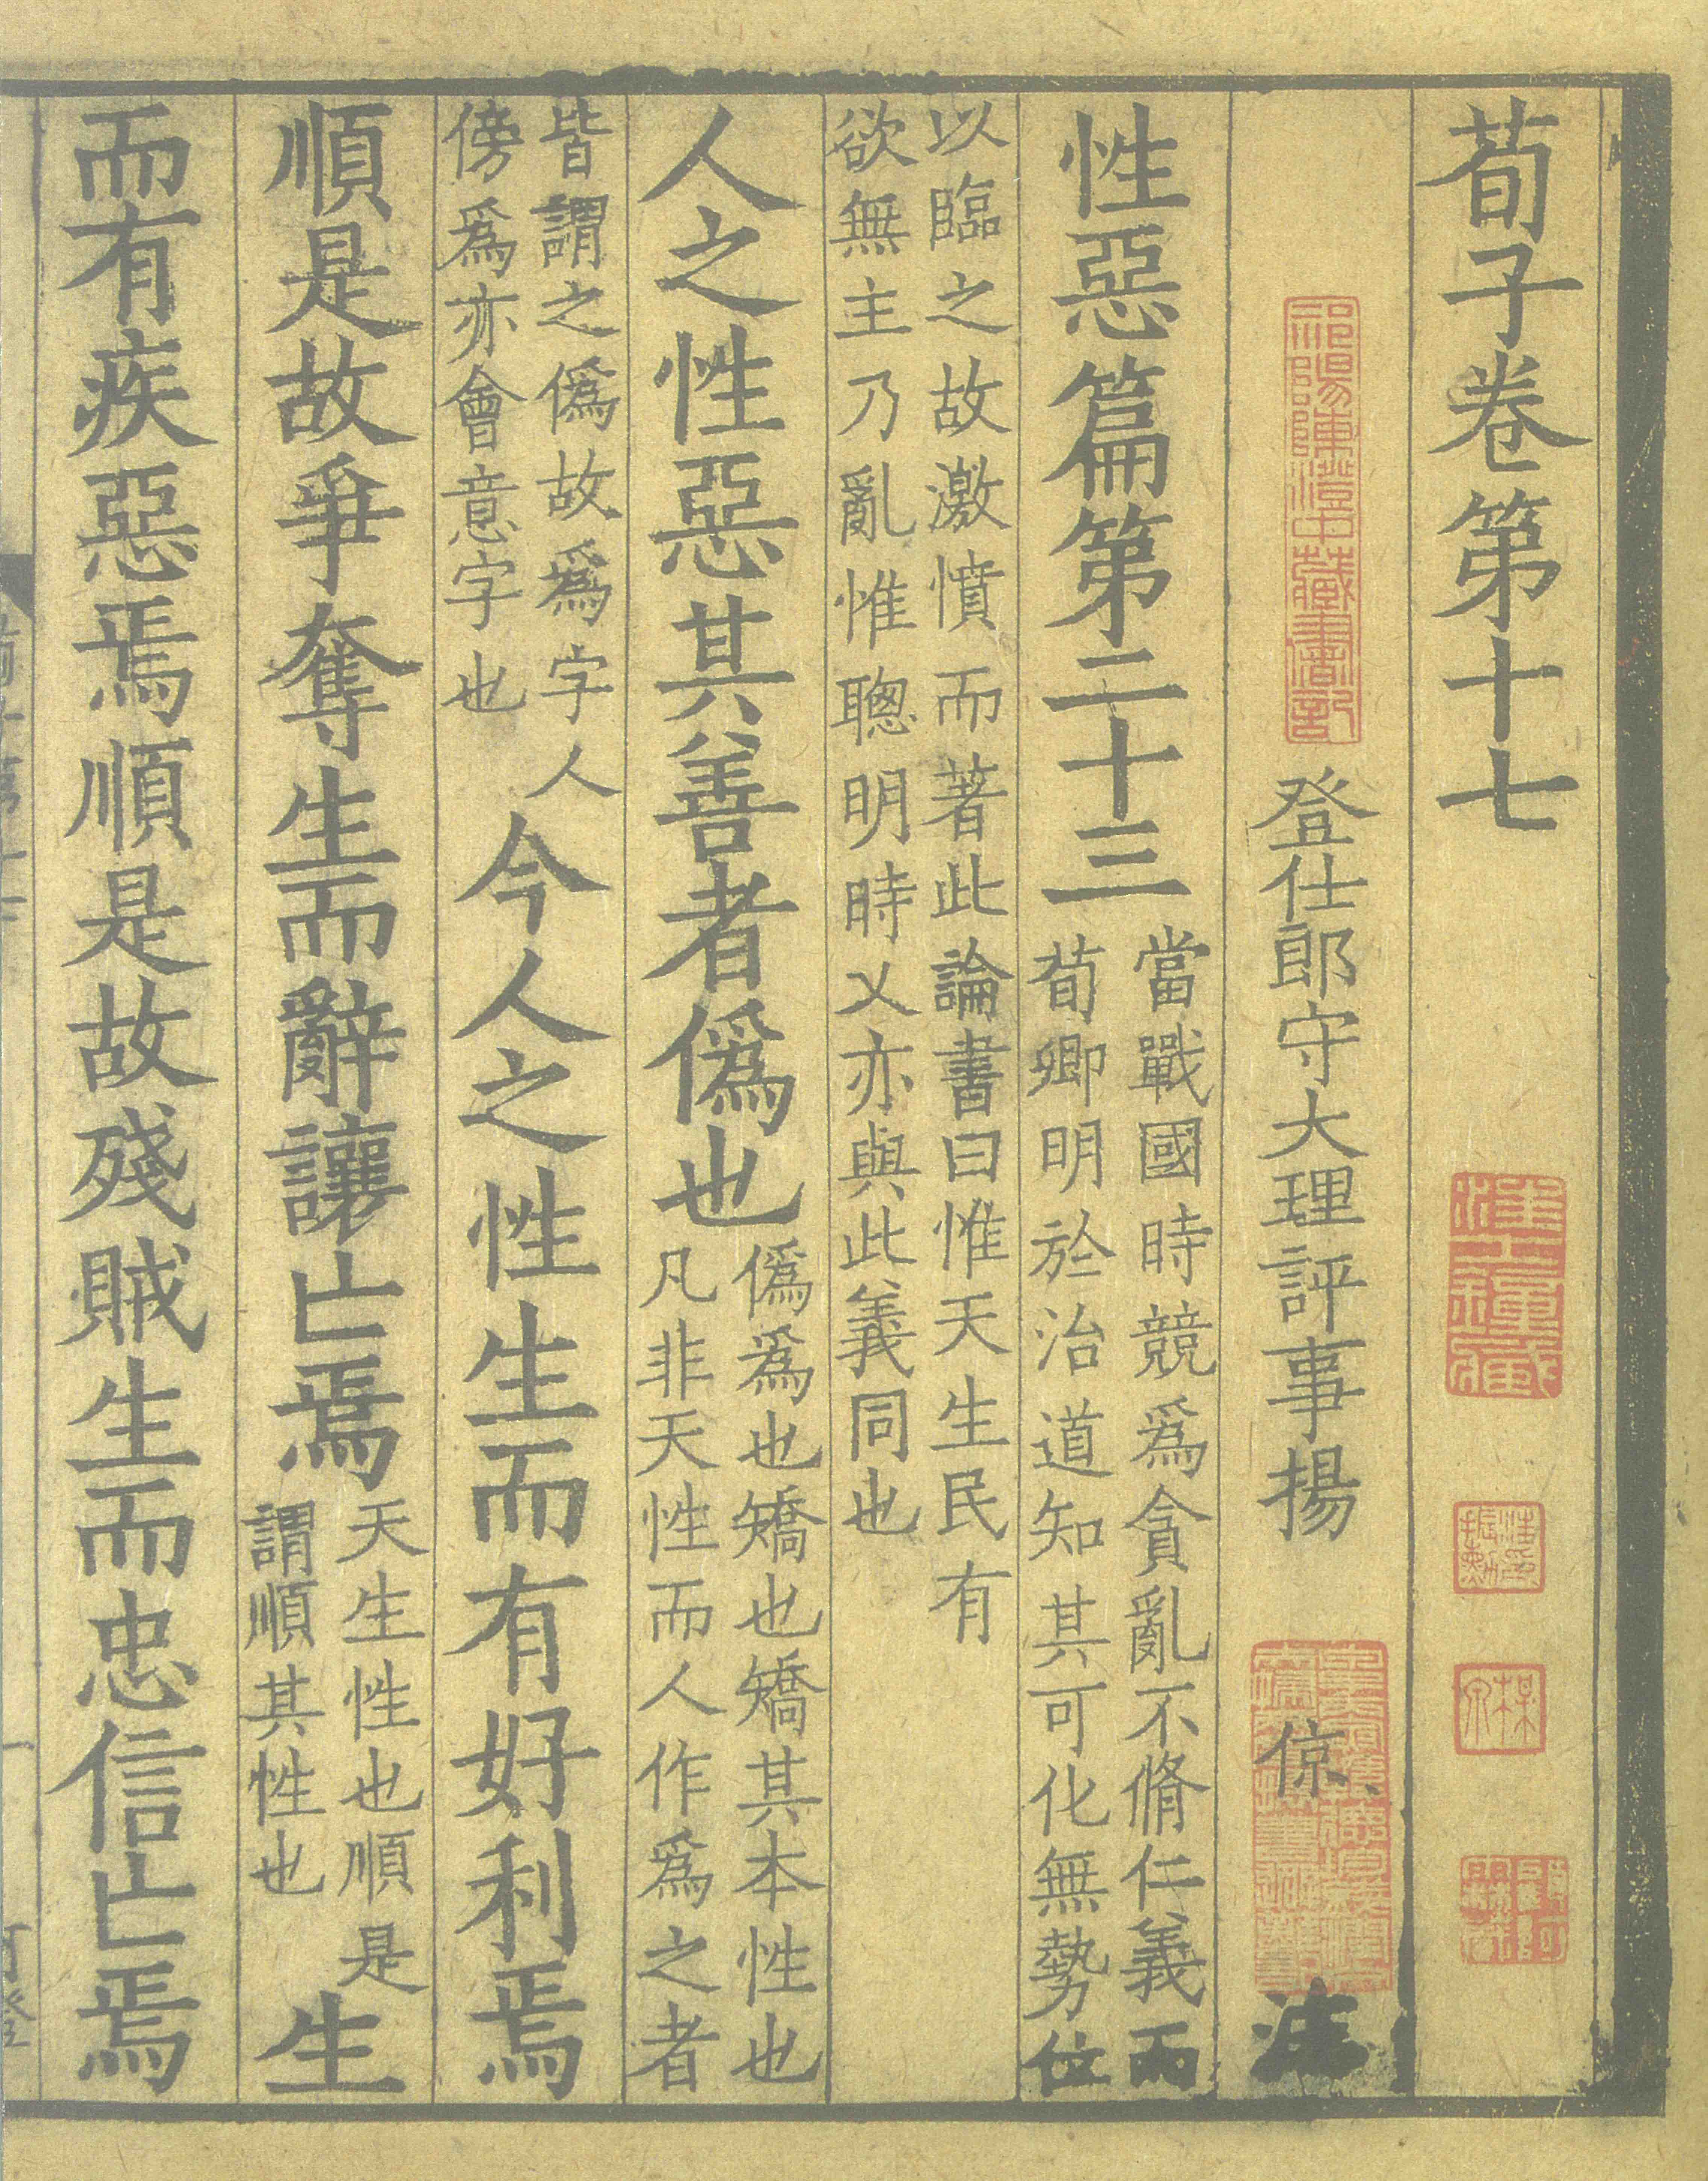 荀子卷第十七
登仕郎守大理評事揚 倞 注
性惡篇第二十三
當戰國時競爲貪亂不脩仁義而
荀卿明於治道知其可化無勢位
以臨之故激憤而著此論書曰惟天生民有
欲無主乃亂惟聰明時乂亦與此義同也
人之性惡其善者僞也
僞爲也矯也矯其本性也
凡非天性而人作爲之者
皆謂之僞故爲字人
傍爲亦會意字也
今人之性生而有好利焉
順是故爭奪生而辭讓亡焉
天生性也順是
謂順其性也
生
而有疾惡焉順是故殘賊生而忠信亡焉